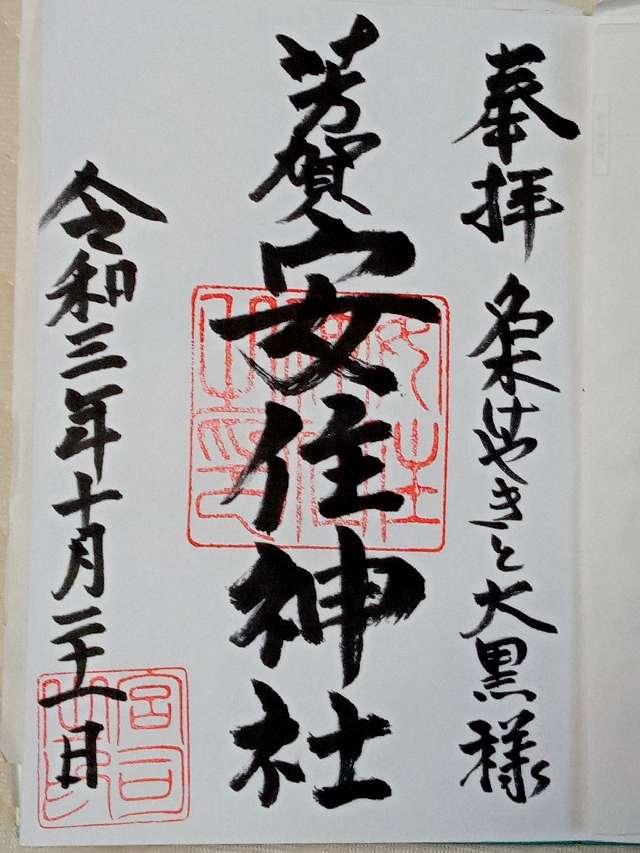 奉拝
大黒様
芳賀安住神社
令和三年十月二十一日
安住神社之印
宮司之印